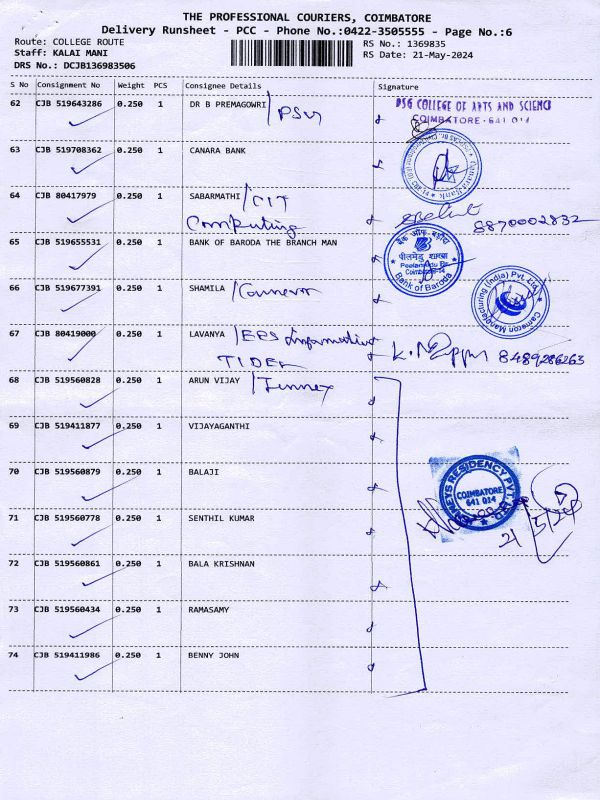 THE PROFESSIONAL COURIERS, COIMBATORE
Delivery Runsheet - PCC - Phone No.:0422-3505555 - Page No.:6
Route: COLLEGE ROUTE
Staff: KALAI MANI
DRS No.: DCJB136983506
RS No.: 1369835
RS Date: 21-May-2024
S No Consignment No Weight PCS Consignee Details Signature
62 CJB 519643286 0.250 1 DR B PREMAGOWRI / PSG
PSG COLLEGE OF ARTS AND SCIENCE
COIMBATORE - 641 014
63 CJB 519708362 0.250 1 CANARA BANK
64 CJB 80417979 0.250 1 SABARMATHI / CIT
Computing
8870002832
65 CJB 519655531 0.250 1 BANK OF BARODA THE BRANCH MAN
बैंक ऑफ़ बड़ौदा
पीलमेडु शाखा
Peelamedu Br.
Coimbatore-14
Bank of Baroda
66 CJB 519677391 0.250 1 SHAMILA
Cameron Manufacturing (India) Pvt. Ltd.
67 CJB 80419000 0.250 1 LAVANYA / EPS Information
TIDEL
8489286263
68 CJB 519560828 0.250 1 ARUN VIJAY
69 CJB 519411877 0.250 1 VIJAYAGANTHI
70 CJB 519560879 0.250 1 BALAJI
RESIDENCY PVT. LTD
COIMBATORE
641 014
21/5/24
71 CJB 519560778 0.250 1 SENTHIL KUMAR
72 CJB 519560861 0.250 1 BALA KRISHNAN
73 CJB 519560434 0.250 1 RAMASAMY
74 CJB 519411986 0.250 1 BENNY JOHN